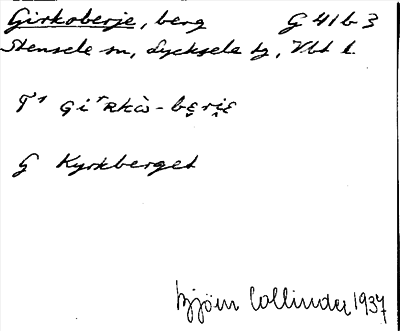 Girkoberje, berg G 41 b 3
Stensele sn, Lycksele tg, Vbt l.
G Kyrkberget
Björn Collinder 1937